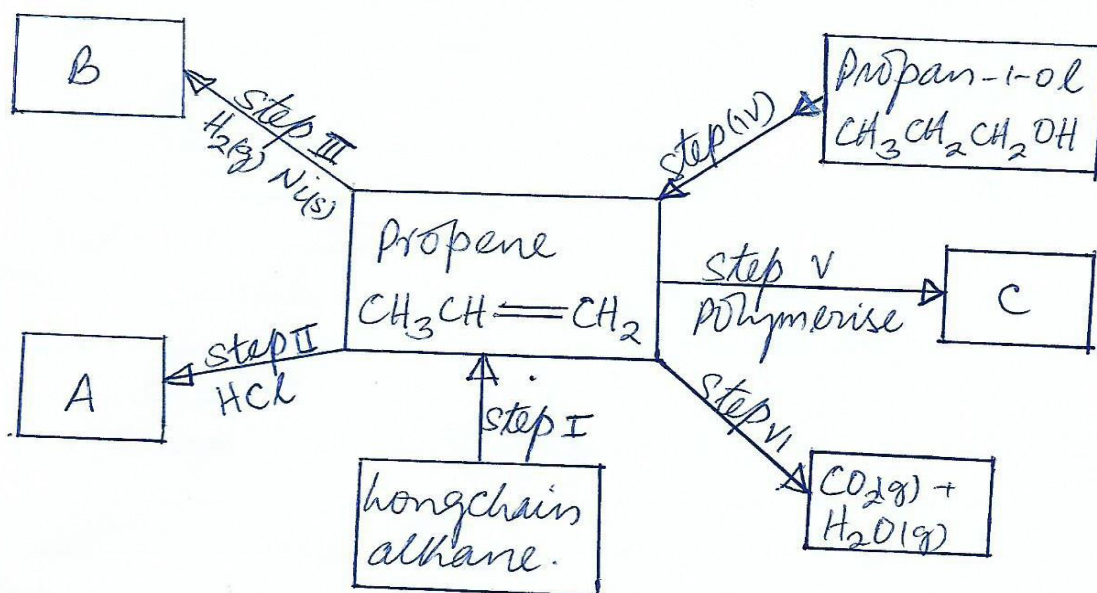 B
Step III
H₂(g) Ni(s)
Propan-1-ol
CH₃CH₂CH₂OH
Step (IV)
Propene
CH₃CH=CH₂
Step V
Polymerise
C
Step II
HCl
A
Step I
Longchain
alkane.
Step VI
CO₂(g) +
H₂O(g)